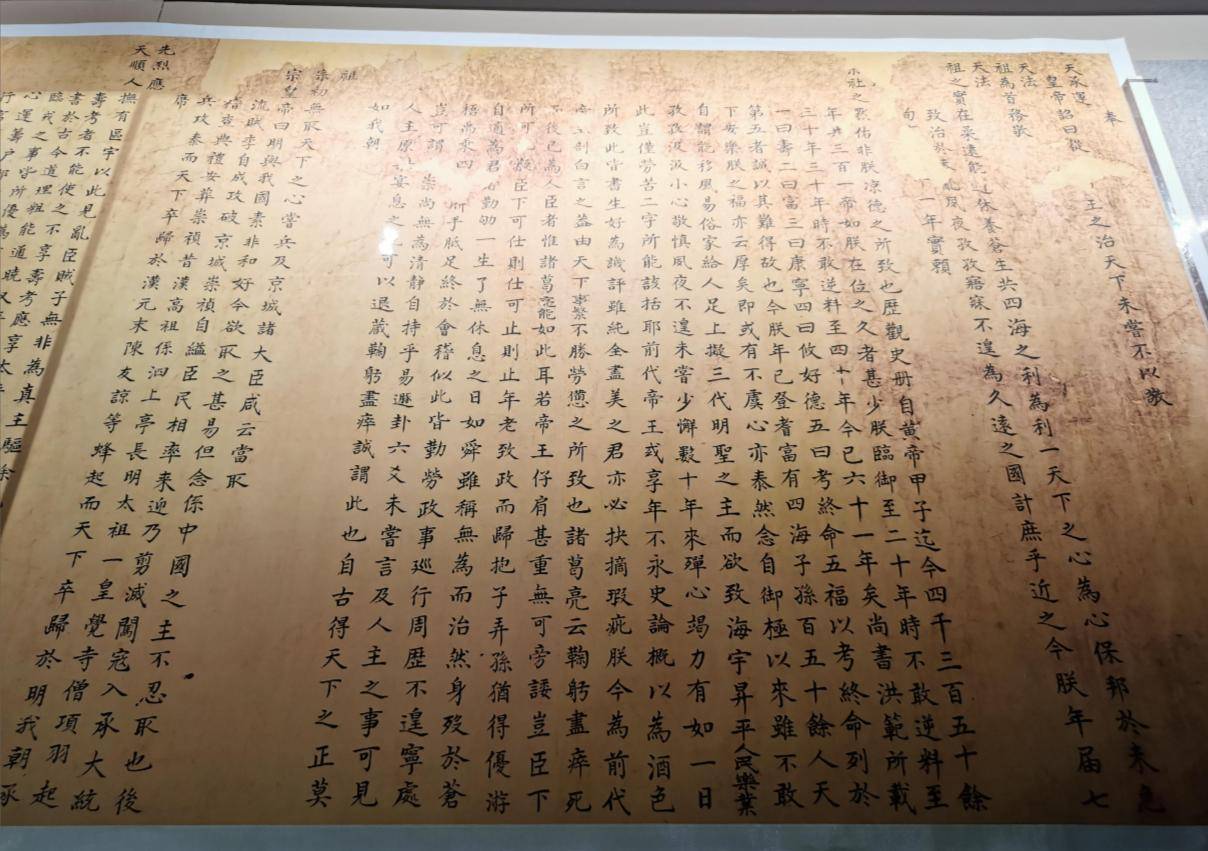 奉
天承運
皇帝詔曰從
王之治天下未嘗不以敬
天法
祖為首務敬
天法
祖之實在柔遠能邇休養蒼生共四海之利為利一天下之心為心保邦於未危
致治於未亂夙夜孜孜寤寐不遑為久遠之國計庶乎近之今朕年屆七
旬
一年實賴
社之默佑非朕涼德之所致也歷觀史册自黃帝甲子迄今四千三百五十餘
年共三百一帝如朕在位之久者甚少朕臨御至二十年時不敢逆料至
三十年三十年時不敢逆料至四十年今已六十一年矣尚書洪範所載
一曰壽二曰富三曰康寧四曰攸好德五曰考終命五福以考終命列於
第五者誠以其難得故也今朕年已登耆富有四海子孫百五十餘人天
下安樂朕之福亦云厚矣即或有不虞心亦泰然念自御極以來雖不敢
自謂能移風易俗家給人足上擬三代明聖之主而欲致海宇昇平人民樂業
孜孜汲汲小心敬慎夙夜不遑未嘗少懈數十年來殫心竭力有如一日
此豈僅勞苦二字所能該括耶前代帝王或享年不永史論概以為酒色
所致此皆書生好為譏評雖純全盡美之君亦必抉摘瑕疵朕今為前代
剖白言之蓋由天下事繁不勝勞憊之所致也諸葛亮云鞠躬盡瘁死
後已為人臣者惟諸葛亮能如此耳若帝王仔肩甚重無可旁諉豈臣下
所可擬臣下可仕則仕可止則止年老致政而歸抱子弄孫猶得優游
自適為君者勤劬一生了無休息之日如舜雖稱無為而治然身歿於蒼
梧禹乘四胼手胝足終於會稽似此皆勤勞政事巡行周歷不遑寧處
豈可謂崇尚無為清靜自持乎易遯卦六爻未嘗言及人主之事可見
人主原宴息之可以退藏鞠躬盡瘁誠謂此也自古得天下之正莫
如我朝
祖
宗初無取天下之心嘗兵及京城諸大臣咸云當取
宗皇帝曰明與我國素非和好今欲取之甚易但念係中國之主不忍取也後
流賊李自成攻破京城崇禎自縊臣民相率來迎乃剪滅闖寇入承大統
稽查典禮安葬崇禎昔漢高祖係泗上亭長明太祖一皇覺寺僧項羽起
兵攻秦而天下卒歸於漢元末陳友諒等蜂起而天下卒歸於明我朝承
席
先烈應
天順人
撫有區宇以此見亂臣賊子無非為真主驅除
壽考者不能使之不享壽考應享太平
書於古今道理粗能通曉又